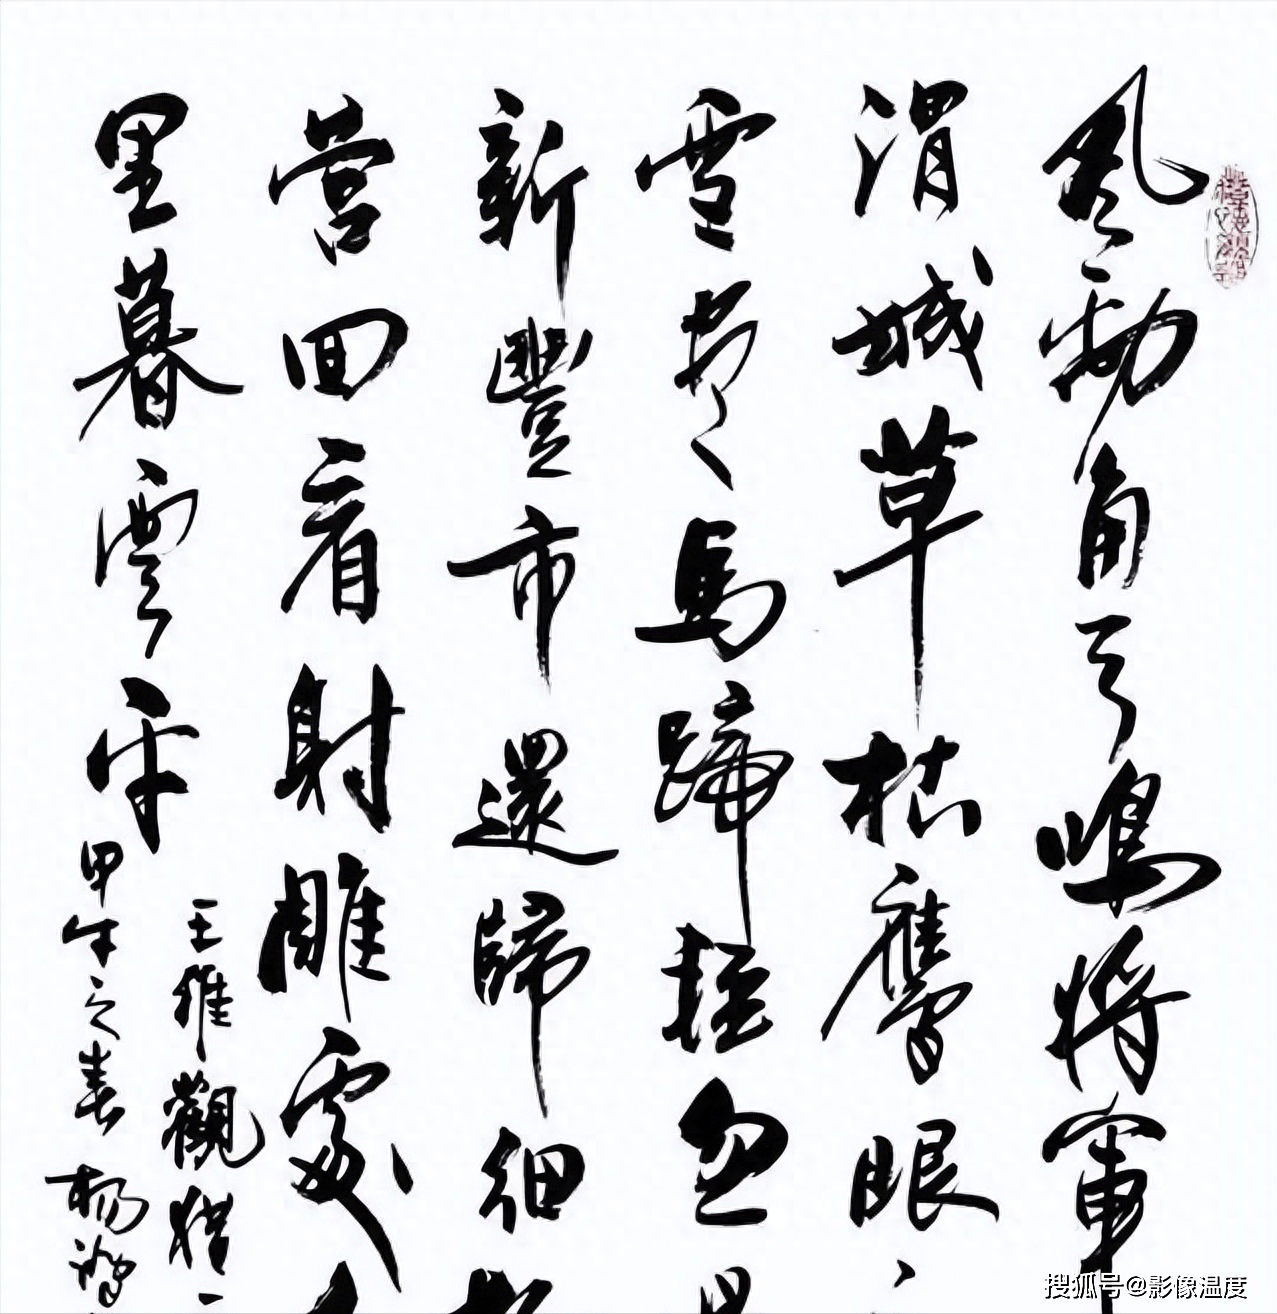 風動角弓鳴将軍
渭城草枯鷹眼
雪盡馬蹄輕忽
新豐市還歸細
营回看射雕處
里暮雲平
王維觀獵一
甲午之春楊
搜狐号@影像温度